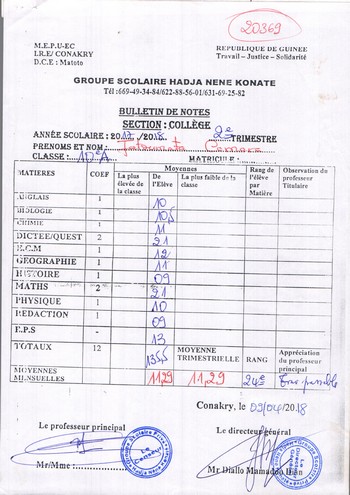 20369
M.E.P.U-EC
I.R.E/ CONAKRY
D.C.E : Matoto
REPUBLIQUE DE GUINEE
Travail – Justice – Solidarité
GROUPE SCOLAIRE HADJA NENE KONATE
Tél :669-49-34-84/622-88-56-01/631-69-25-82
BULLETIN DE NOTES
SECTION : COLLÈGE
ANNÉE SCOLAIRE : 2017 /2018 2e TRIMESTRE
PRENOMS ET NOM : Fatoumata Camara
CLASSE : 10e A MATRICULE :
MATIERES COEF Moyennes Rang de l'élève par Matière Observation du professeur Titulaire
La plus élevée de la classe De l'Elève La plus faible de la classe
ANGLAIS 1 10
BIOLOGIE 1 10,5
CHIMIE 1 11
DICTEE/QUEST 2 21
E.C.M 1 12
GEOGRAPHIE 1 11
HISTOIRE 1 09
MATHS 2 21
PHYSIQUE 1 10
REDACTION 1 09
E.P.S - 13
TOTAUX 12 135,5 MOYENNE TRIMESTRIELLE RANG Appréciation du professeur principal
MOYENNES MENSUELLES 11,29 11,29 24e passable
Conakry, le 09/04/2018
Le professeur principal Le directeur général
Mr/Mme : Mr Diallo Mamadou